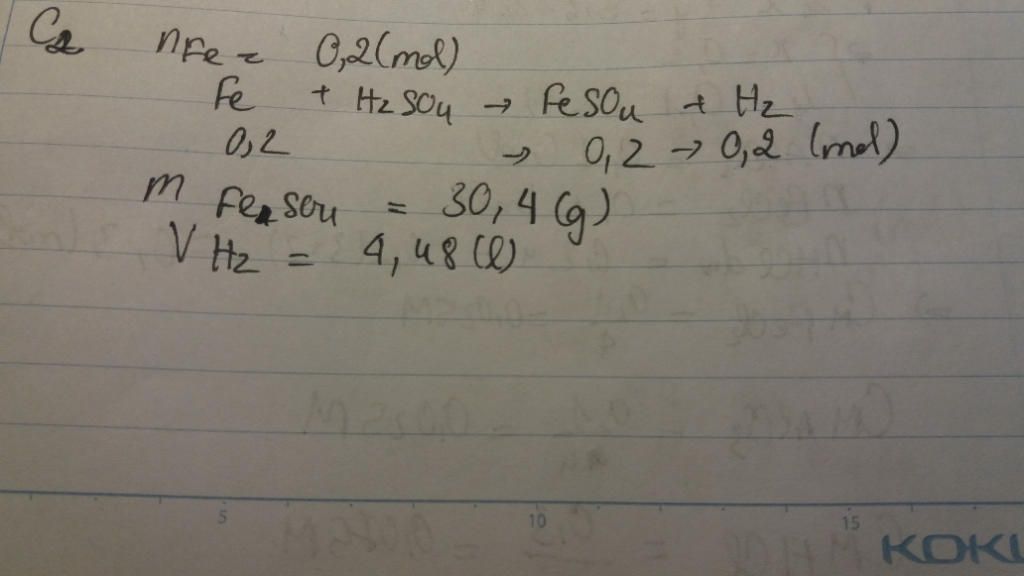 C2 nFe = 0,2 (mol)
Fe + H2SO4 → FeSO4 + H2
0,2 → 0,2 → 0,2 (mol)
m FeSO4 = 30,4 (g)
V H2 = 4,48 (l)
5 10 15
KOKU